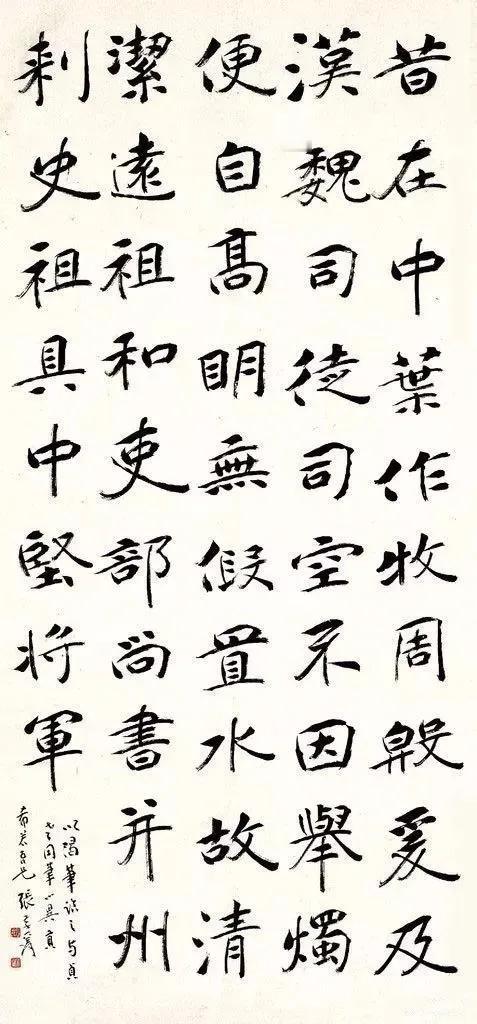 昔在中葉作牧周殷爰及
漢魏司徒司空不因舉燭
便自髙明無假置水故清
潔遠祖和吏部尚書并州
刺史祖具中堅將軍
以渴筆臨之与
同筆
吾兄 張爰